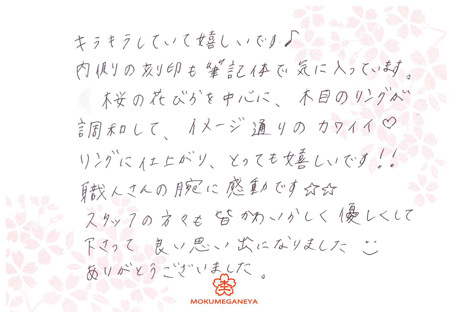 キラキラしていて嬉しいです♪
内側の刻印も筆記体で気に入っています。
桜の花びらを中心に、木目のリングが
調和して、イメージ通りのカワイイ♡
リングに仕上がり、とっても嬉しいです!!
職人さんの腕に感動です☆☆
スタッフの方々も皆かわいらしく優しくして
下さって良い思い出になりました☺
ありがとうございました。
MOKUMEGANEYA